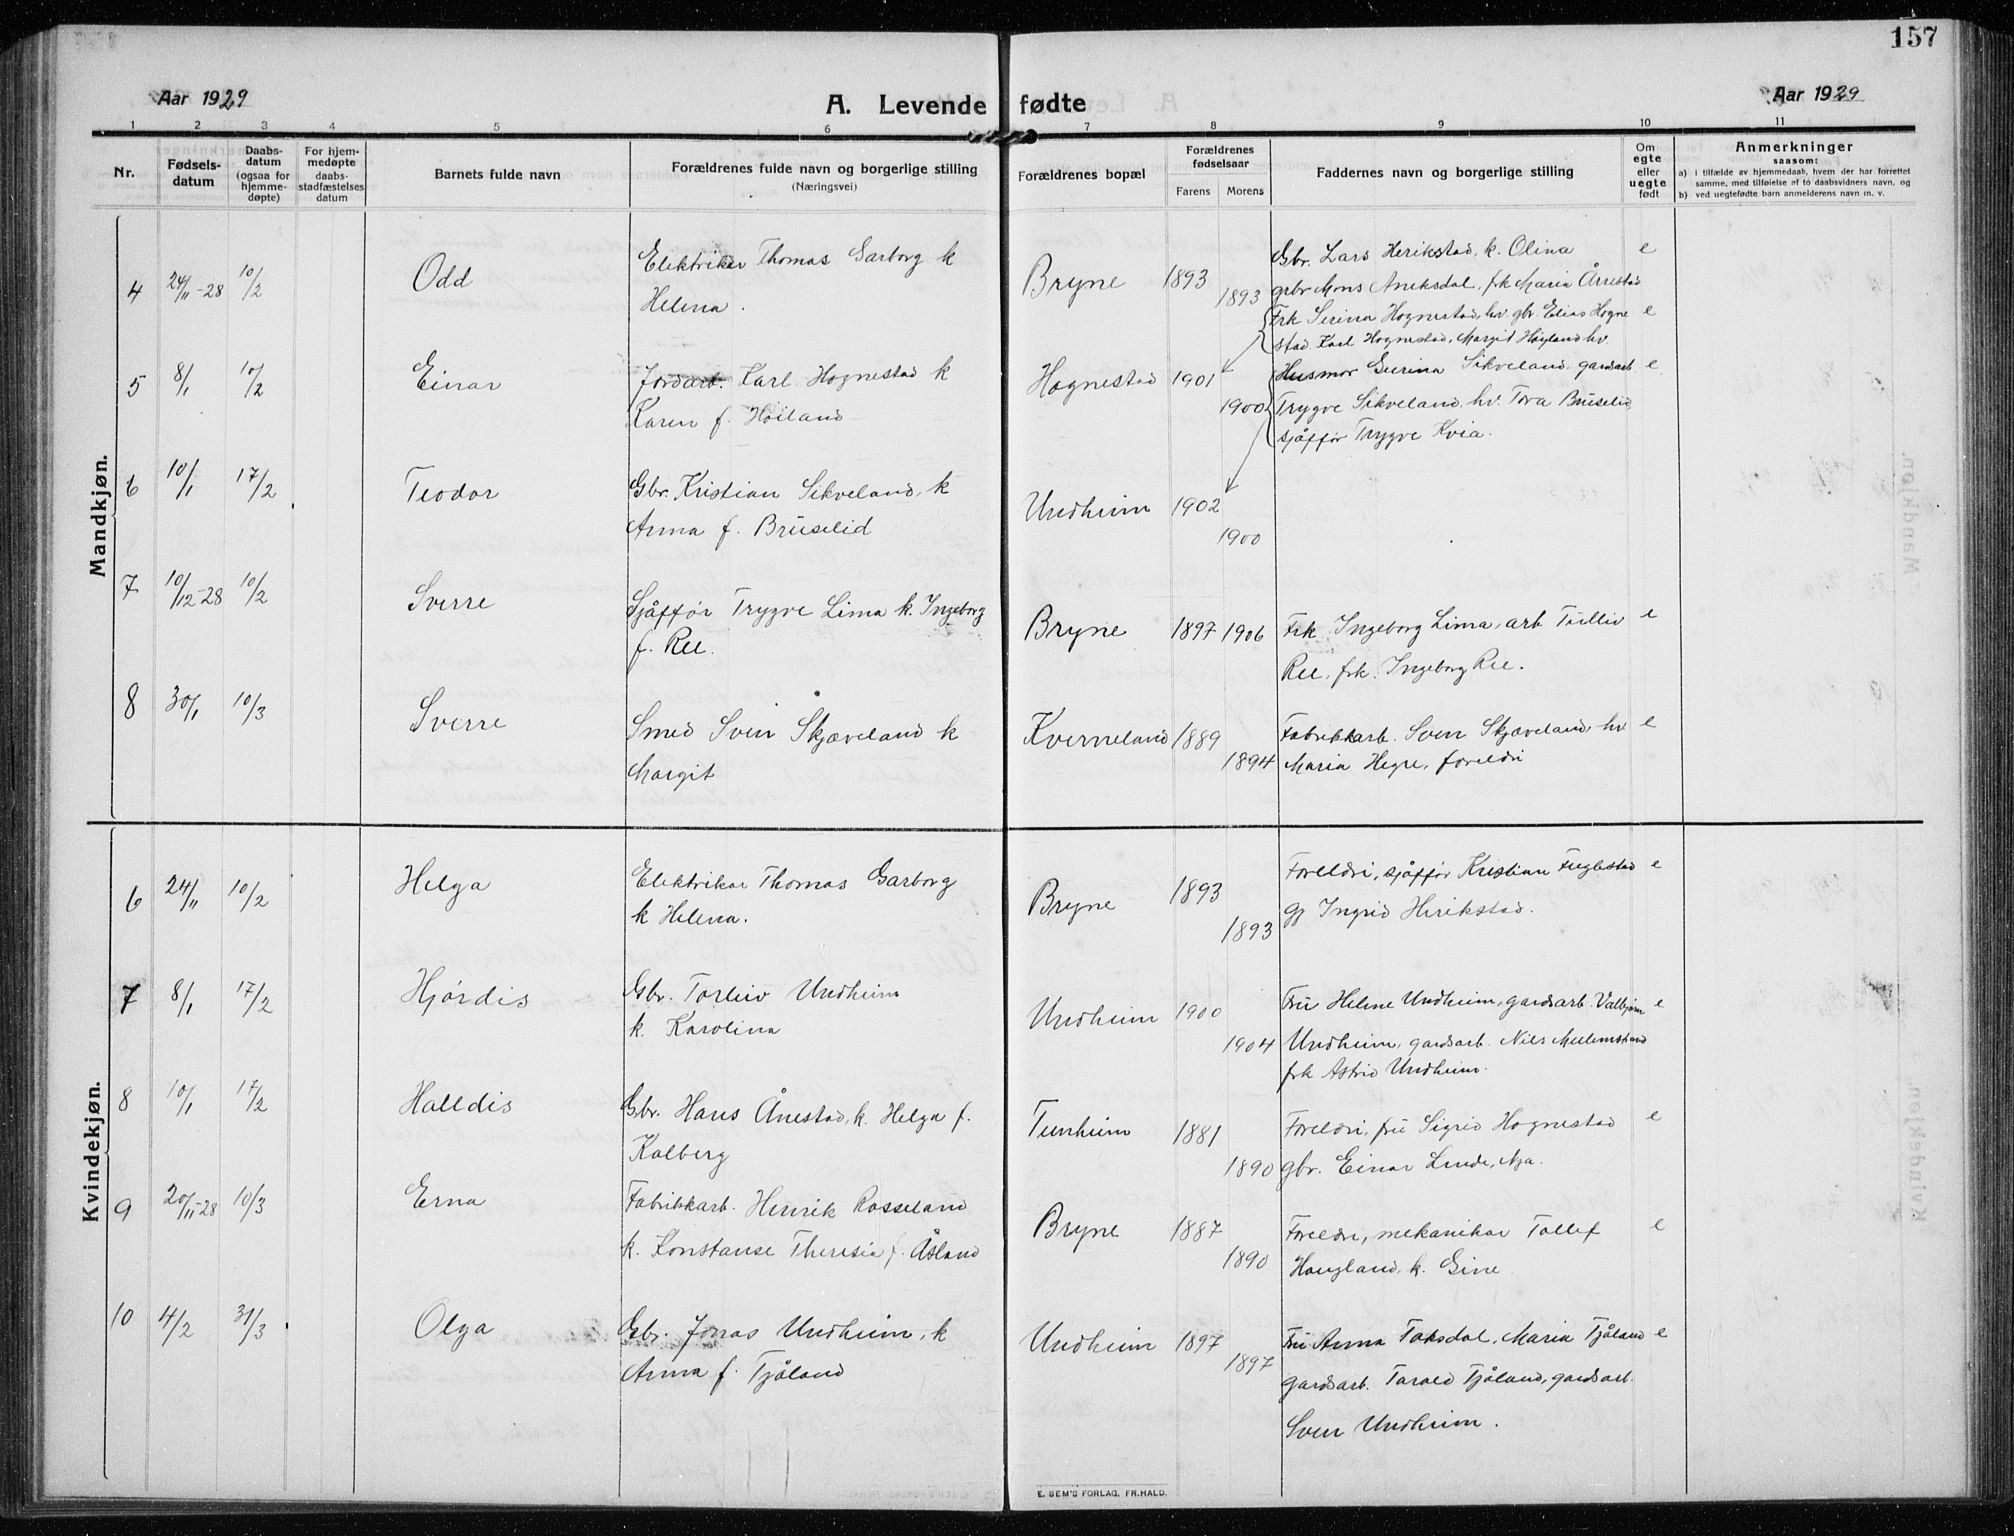 157
Aar 1929
A. Levende fødte
Aar 1929
1 2 3 4 5 6 7 8 9 10 11
Nr.
Fødsels-
datum
Daabs-
datum
(ogsaa for
hjemme-
døpte)
For hjem-
medøpte
daabs-
stadfæstelses
datum
Barnets fulde navn
Forældrenes fulde navn og borgerlige stilling
(Næringsvei)
Forældrenes bopæl
Forældrenes
fødselsaar
Farens Morens
Faddernes navn og borgerlige stilling
Om
egte
eller
uegte
født
Anmerkninger
saasom:
a) i tilfælde av hjemmedaab, hvem der har forrettet
samme, med tilføielse af to daabsvidners navn, og
b) ved uegtefødte barn anmelderens navn m. v.
Mandkjøn.
4 24/11-28 10/2 Odd
Elektriker Thomas Garborg k
Helena.
Bryne 1893 1893
Gbr. Lars Herikstad, k. Olina e
grbr Mons Aneksdal, frk Maria Årrestad
5 8/1 10/2 Einar
Jordarb. Karl Hognestad k
Karen f. Høiland
Hognestad 1901 1900
Frk Serina Hognestad, hv. gbr. Elias Hogne e
stad. Karl Hognestad, Margit Høyland hv.
6 10/1 17/2 Teodor
Gbr. Kristian Sikveland, k
Anna f. Bruselid
Undheim 1902 1900
Husmor Gurina Sikveland, gardsarb e
Trygve Sikveland, hv. Tora Bruselid,
sjåffør Trygve Kvia.
7 10/12-28 10/2 Sverre
Sjåffør Trygve Lima k. Ingeborg
f. Ree.
Bryne 1897 1906
Frk Ingeborg Lima, arb Tolliv e
Ree, frk. Ingeborg Ree.
8 30/1 10/3 Sverre
Smed Svein Skjæveland k
Margit
Kverneland 1889 1894
Fabrikkarb. Sven Skjæveland, hv e
Maria Hegre, foreldri
Kvindekjøn.
6 24/11 10/2 Helga
Elektrikar Thomas Garborg
k Helena.
Bryne 1893 1893
Foreldri, sjåffør Kristian Fuglestad e
gj Ingrid Herikstad.
7 8/1 17/2 Hjørdis
Gbr. Torleiv Undheim
k. Karolina
Undheim 1900 1904
Fru Helene Undheim, gardsarb. Valbjørn e
Undheim, gardsarb. Nils Mellemstrand
frk Astrid Undheim.
8 10/1 17/2 Halldis
Gbr. Hans Årrestad, k. Helga f.
Kalberg
Tunheim 1881 1890
Foreldri, fru Sigrid Hognestad e
gbr. Einar Lende, Nja.
9 20/11-28 10/3 Erna
Fabrikkarb. Henrik Rosseland
k. Konstanse Theresia f. Åsland
Bryne 1887 1890
Foreldri, mekanikar Tollef e
Haugland, k. Gine
10 4/2 31/3 Olga
Gbr. Jonas Undheim, k
Anna f. Tjåland
Undheim 1897 1897
Fru Anna Taksdal, Maria Tjåland e
gardsarb. Tarald Tjåland, gardsarb.
Sven Undheim.
E. SEM'S FORLAG, FR.HALD.